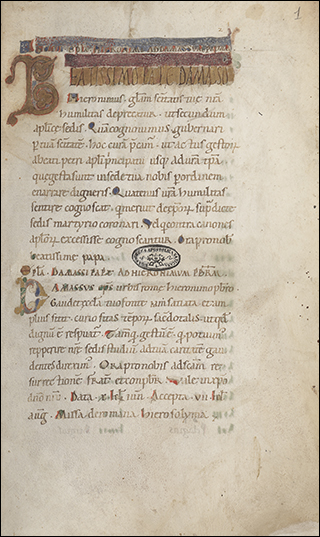 1
BEATISSIMO PAPE DAMASO
hieronimus. Glam scitatis tue nra
humilitas deprecatur. ut secundum
aplice sedis. Quā cognouimus gubernari
p tuā scitatē. hoc curui pcam. ut actus gestoꝝ
abeati petri apli principatu usq; ad ura tpa
que gesta sunt in sede tua nobis p ordinem
enarrare digneris. Quatenus nra humilitas
sentire cognoscat. q meruit de epoꝝ supdicte
sedis martyrio coronari. Vel qd contra canones
aploꝝ excessisse cognoscantur. Ora pro nobis
beatissime papa.
Epla DAMASI PAPE AD HIERONIMUM PBRM
DAMASUS eps urbis rome hieronimo pbro
Gaudet eccla tuo fonte iam satiata. et am
plius sitit curiositas tempoꝝ sacerdotalis. ut qd
dignū est respuatur. Tam q gestū ē. q potuim
repperire nre sedis studium. ad tuā caritatē gau
dentes direxim. Ora pro nobis ad scam re
surrectionē. frater et conpbr. Vale in xpo
dno nro. Data x kl iun. Accepta vii kl
aug. Missa de roma hierosolyma.